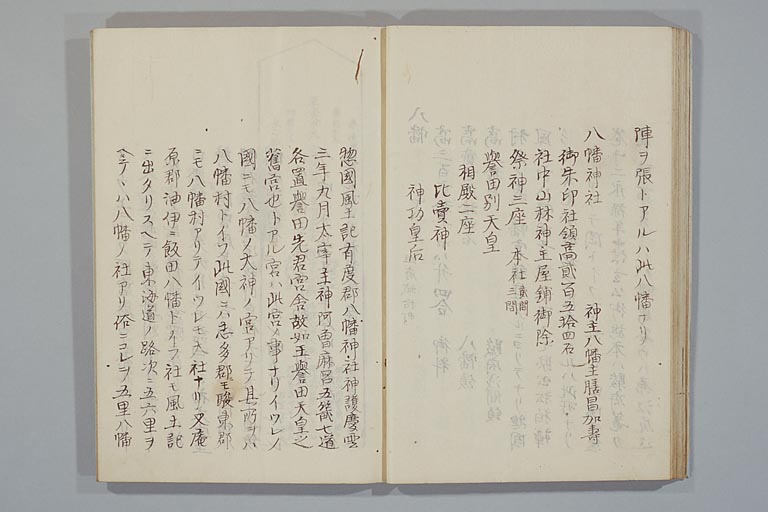 陣ヲ張トアルハ此八幡ナリ
八幡神社　神主八幡主膳昌加壽
御朱印社領高貳百五拾四石
社中山林神主屋鋪御除
祭神三座　本社 貳間三間
譽田別天皇
相殿二座
比賣神
神功皇后
惣國風土記有度郡八幡神社神護慶雲
三年九月太宰主神阿曽麻呂五畿七道
各置譽田先君宮舎故如玉譽田天皇之
舊宮也トアル宮ハ此宮ノ事ナリイツレノ
國ニモ八幡ノ大神ノ宮アリテ其所ヲハ
八幡村トイフ此國ニハ志多郡モ駿東郡
ニモ八幡村アリテイツレモ大社ナリ又庵
原郡油伊ニ飯田八幡トイフ社モ風土記
ニ出タリスヘテ東海道ノ路次ニ五六里ヲ
ヘテヽハ八幡ノ社アリ俗ニコレヲ五里八幡